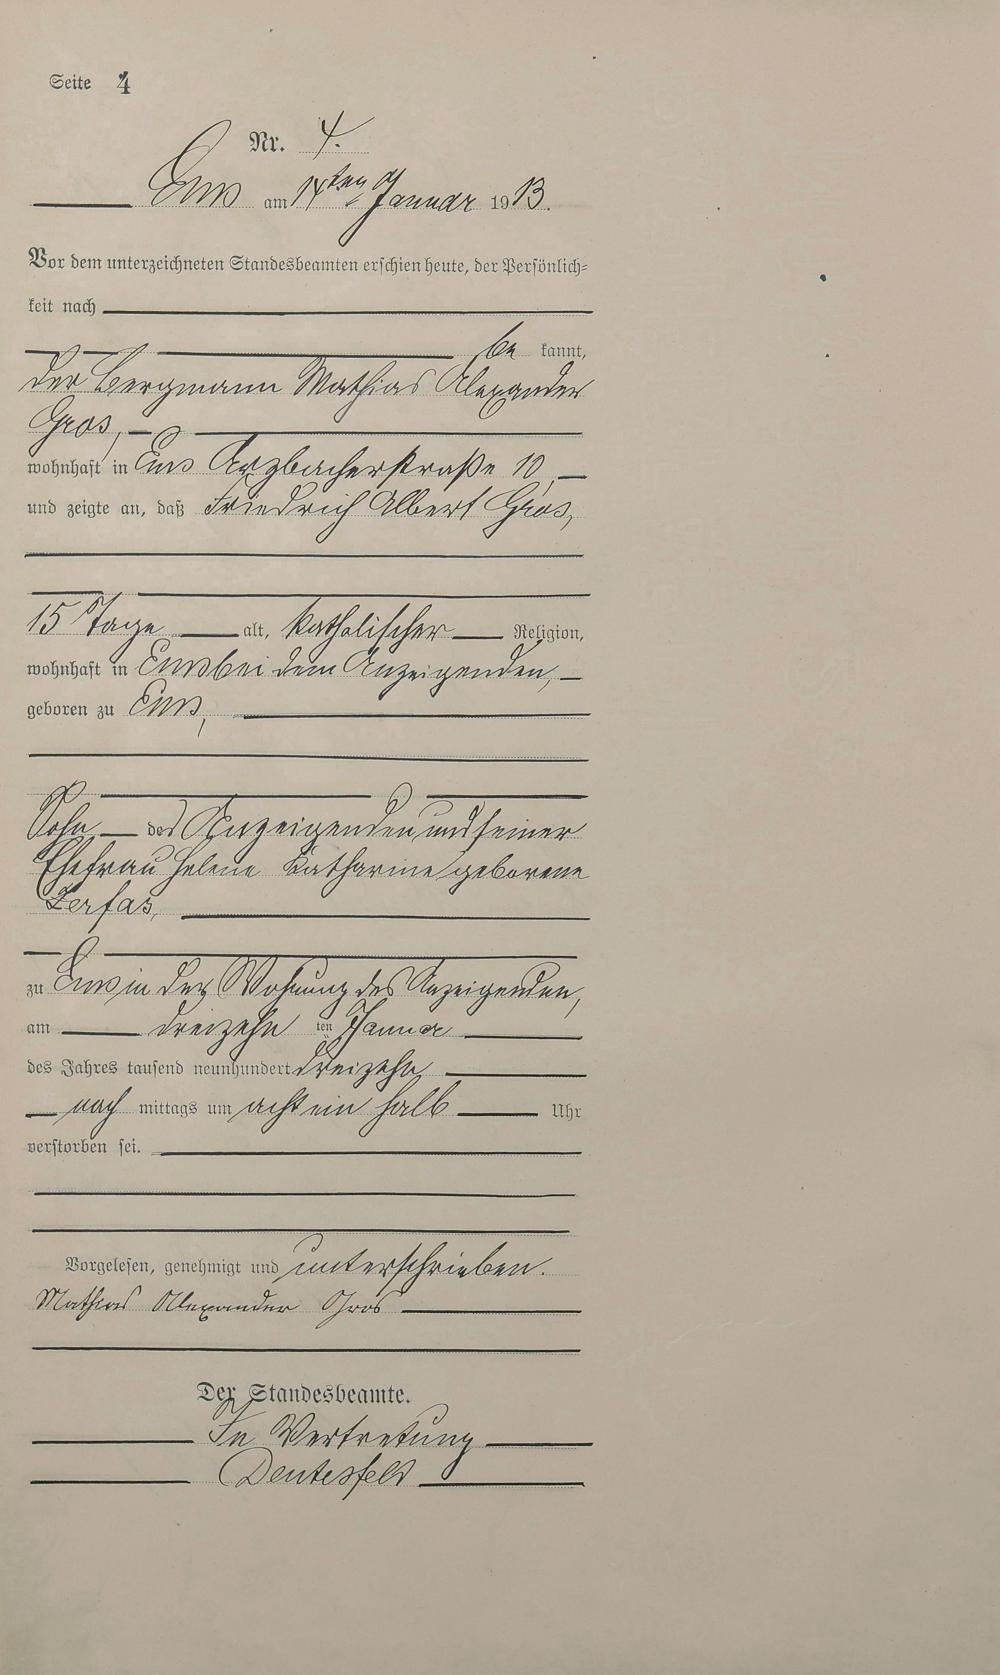 Seite 4
Nr. 4.
Ems am 14ten Januar 1913.
Vor dem unterzeichneten Standesbeamten erschien heute, der Persönlich-
keit nach
be kannt,
der Bergmann Mathias Alexander
Gros,
wohnhaft in Ems Arzbacherstraße 10,
und zeigte an, daß Friedrich Albert Gros,
15 Tage alt, katholischer Religion,
wohnhaft in Ems bei dem Anzeigenden,
geboren zu Ems,
Sohn des Anzeigenden und seiner
Ehefrau Helene Katharine geborene
Zerfas,
zu Ems in der Wohnung des Anzeigenden,
am dreizehn ten Januar
des Jahres tausend neunhundert dreizehn
nach mittags um acht ein halb Uhr
verstorben sei.
Vorgelesen, genehmigt und unterschrieben.
Mathias Alexander Gros
Der Standesbeamte.
In Vertretung